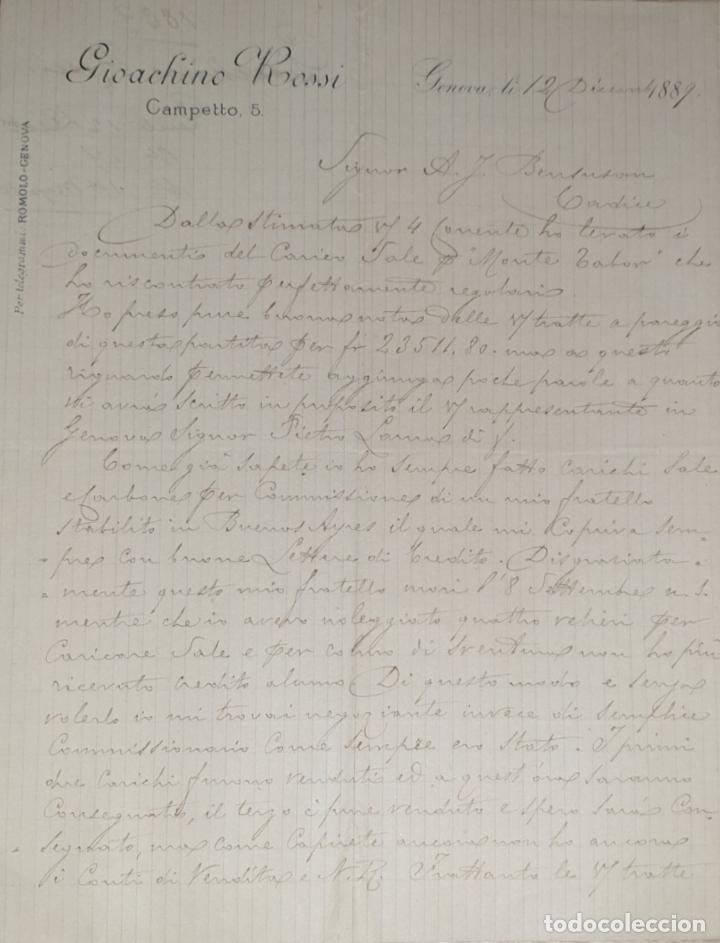 Gioachino Rossi
Campetto, 5.
Genova, li 12 Dicemb 1889.
Per telegrammi: ROMOLO-GENOVA
Signor A. J. Bensusan
Cadice
Dalla stimata V/ 4 Corrente ho levato i
documenti del Carico Sale p "Monte Tabor" che
ho riscontrato perfettamente regolari.
Ho preso pure buona nota delle V/ tratte a pareggio
di questa partita per fr 23511.80. ma a questo
riguardo permettete aggiunga poche parole a quanto
vi avrà scritto in proposito il V/ rappresentante in
Genova Signor Pietro Lama di V.
Come già sapete io ho sempre fatto carichi Sale
e Carbone per Commissione di un mio fratello
stabilito in Buenos Ayres il quale mi Copriva sem-
pre con buone Lettere di Credito. Disgraziata-
mente questo mio fratello morì l'8 Settembre u. s.
mentre che io avevo noleggiato quattro velieri per
Caricare Sale e per colmo di sventura non ho più
ricevuto credito alcuno Di questo modo e senza
volerlo io mi trovai negoziante invece di semplice
Commissionario Come sempre ero stato. I primi
due Carichi furono venduti ed a quest'ora saranno
Consegnati, il terzo è pure venduto e spero sarà Con-
segnato, ma come Capirete ancora non ho ancora
i Conti di Vendita e N.R. Frattanto le V/ tratte
todocoleccion